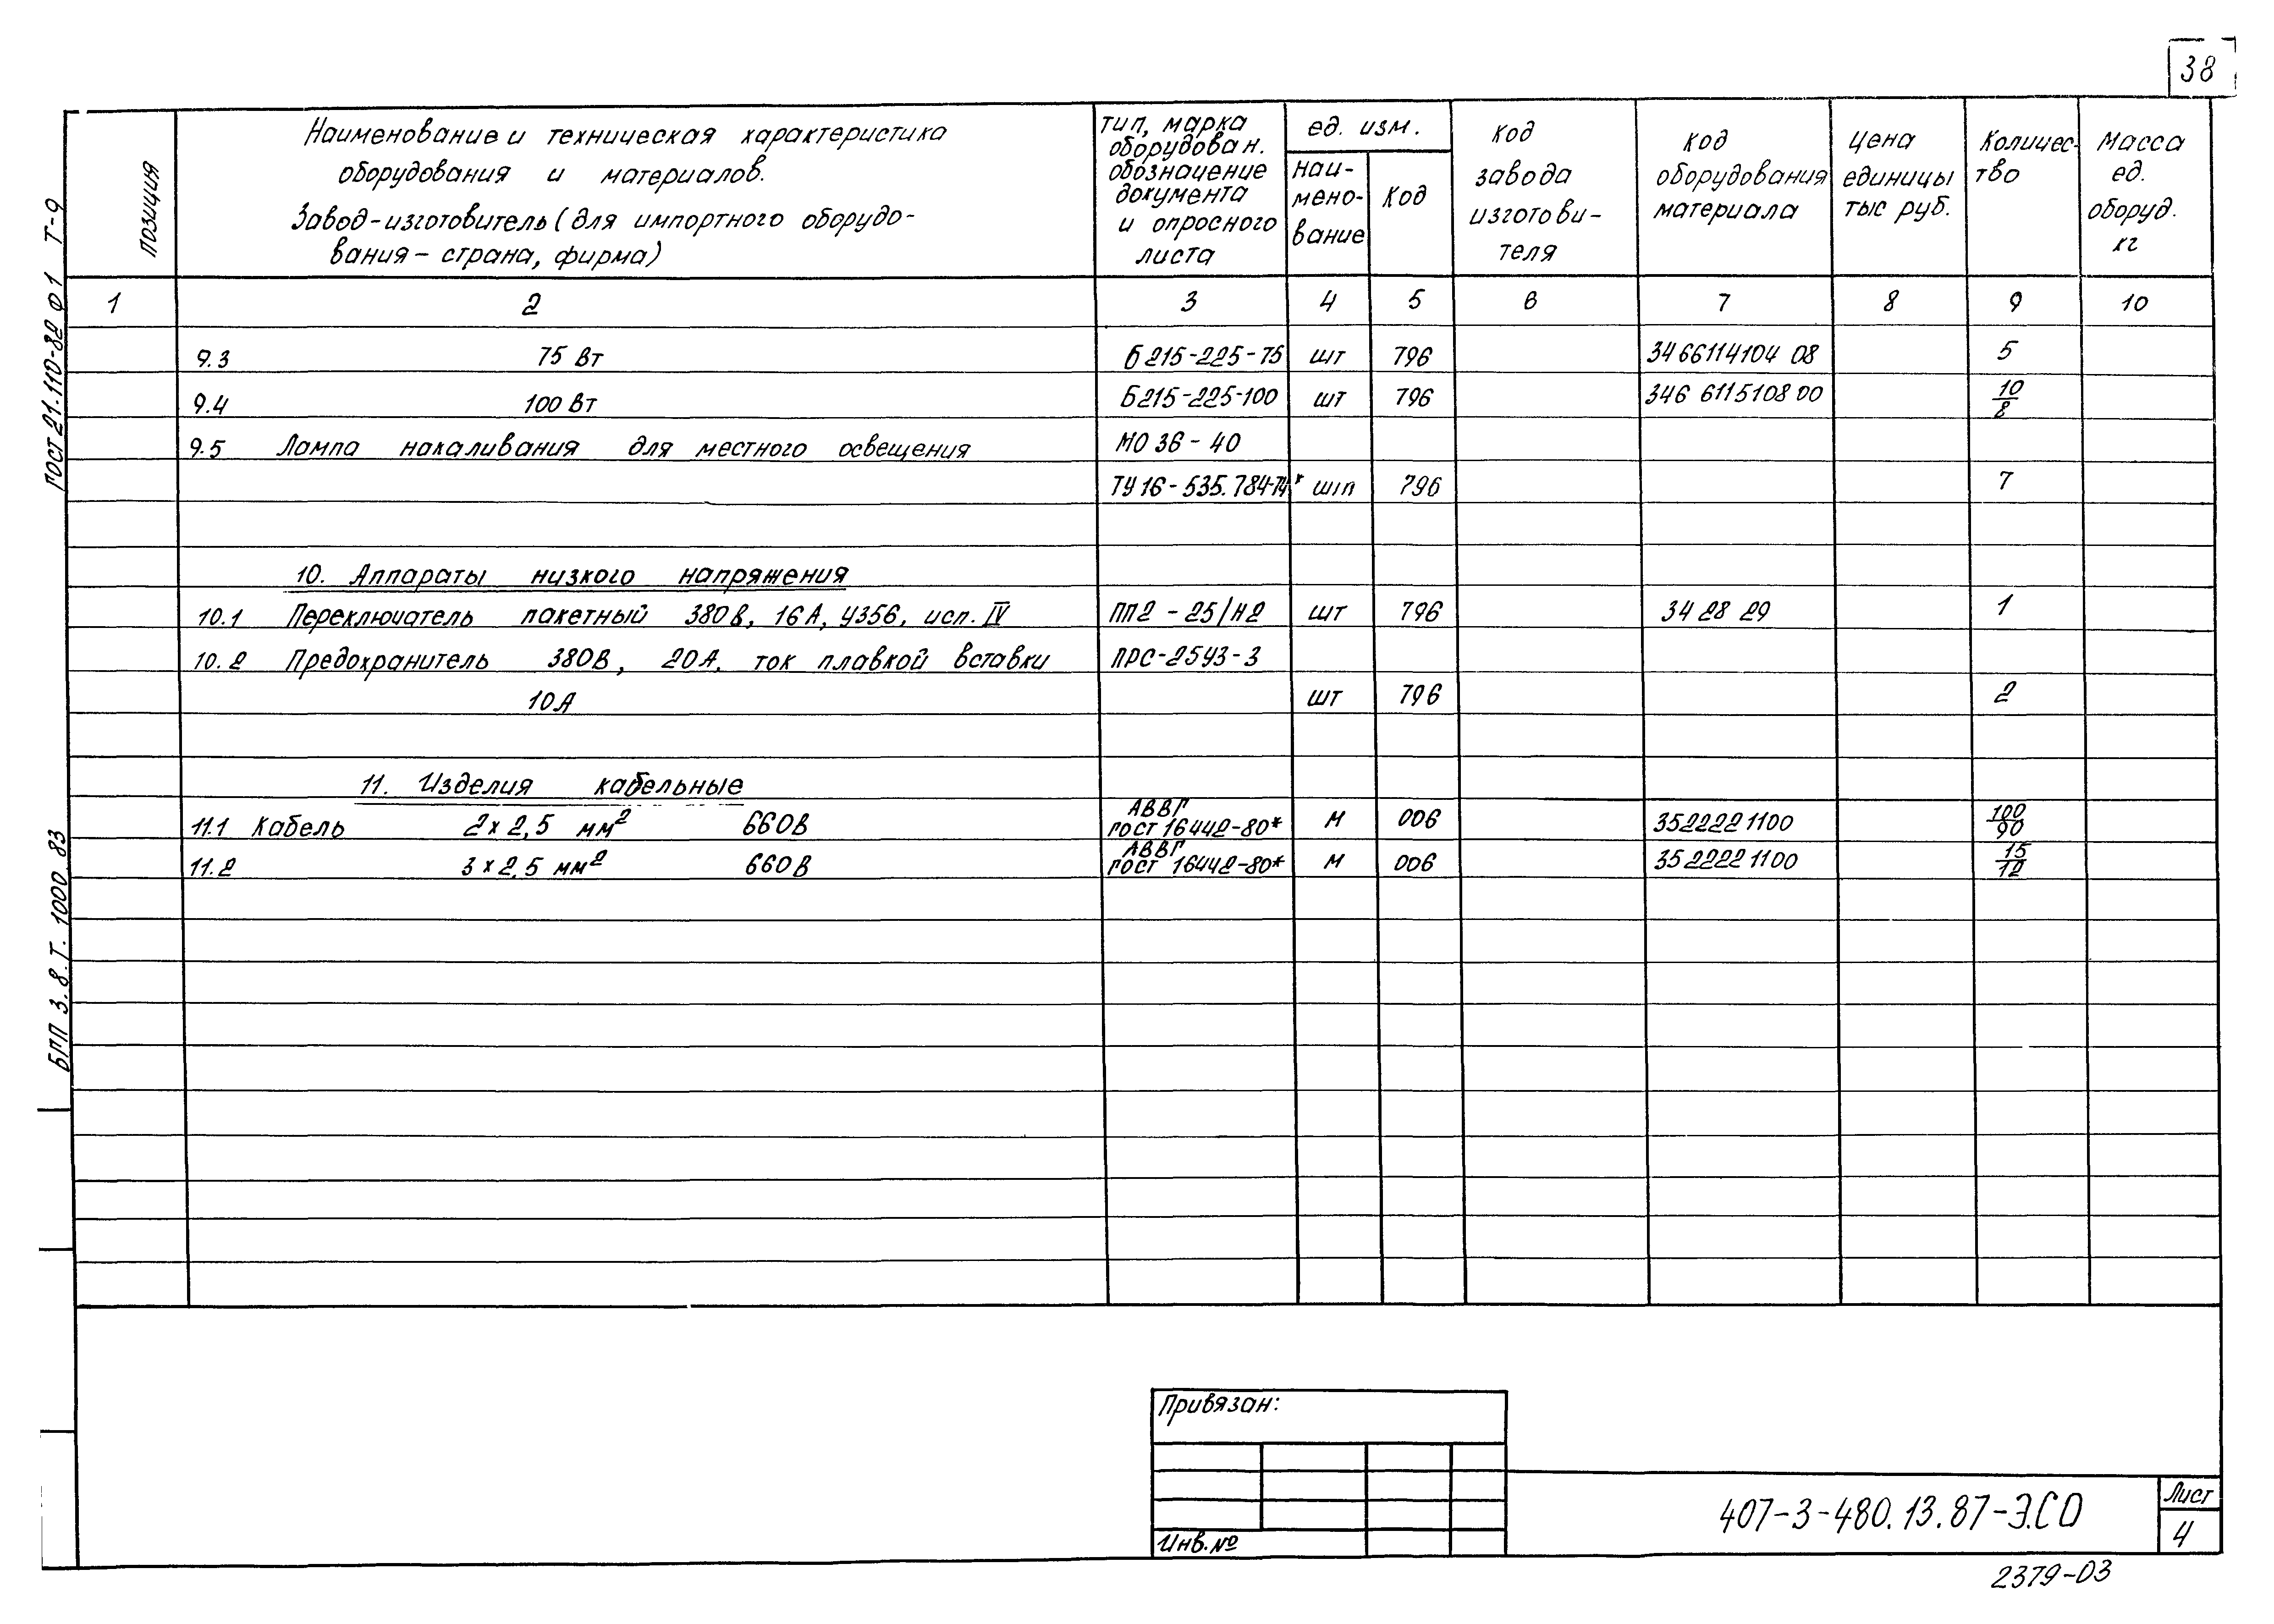 38
Позиция
Наименование и техническая характеристика
оборудования и материалов.
Завод-изготовитель (для импортного оборудо-
вания - страна, фирма)
тип, марка
оборудован.
обозначение
документа
и опросного
листа
ед. изм.
наи-
мено-
вание
Код
Код
завода
изготови-
теля
Код
оборудования
материала
Цена
единицы
тыс руб.
Количес-
тво
Масса
ед.
оборуд.
кг
1 2 3 4 5 6 7 8 9 10
9.3 75 Вт Б215-225-75 шт 796 3466114104 08 5
9.4 100 Вт Б215-225-100 шт 796 346 6115108 00 10/8
9.5 Лампа накаливания для местного освещения МО 36-40
ТУ 16-535.784-74* шт 796 7
10. Аппараты низкого напряжения
10.1 Переключатель пакетный 380В, 16А, У356, исп. IV ПП2-25/Н2 шт 796 34 28 29 1
10.2 Предохранитель 380В, 20А, ток плавкой вставки ПРС-25У3-3
10А шт 796 2
11. Изделия кабельные
11.1 Кабель 2х2,5 мм² 660В АВВГ
гост 16442-80* м 006 3522221100 100/90
11.2 3х2,5 мм² 660В АВВГ
гост 16442-80* м 006 3522221100 15/12
ГОСТ 21.110-82 Ф1 Т-9
БПП З.8.Т.1000 83
Привязан:
Инв.№
407-3-480.13.87-Э.СО
Лист
4
2379-03